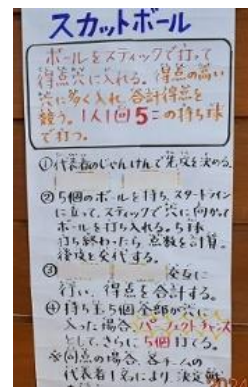 スカットボール
ボールをスティックで打って
得点穴に入れる。得点の高い
穴に多く入れ、合計得点を
競う。1人1回5コの持ち球
で打つ。
①代表者のじゃんけんで先攻を決める。
②5個のボールを持ち、スタートライン
に立って、スティックで穴に向かって
ボールを打ち入れる。5球
打ち終わったら、点数を計算。
後攻と交代する。
③ 交互に
行い、得点を合計する。
④持ち玉5個全部が穴に
入った場合、パーフェクトチャンス
として、さらに5個打てる。
※同点の場合、各チームの
代表者1名により、決定戦